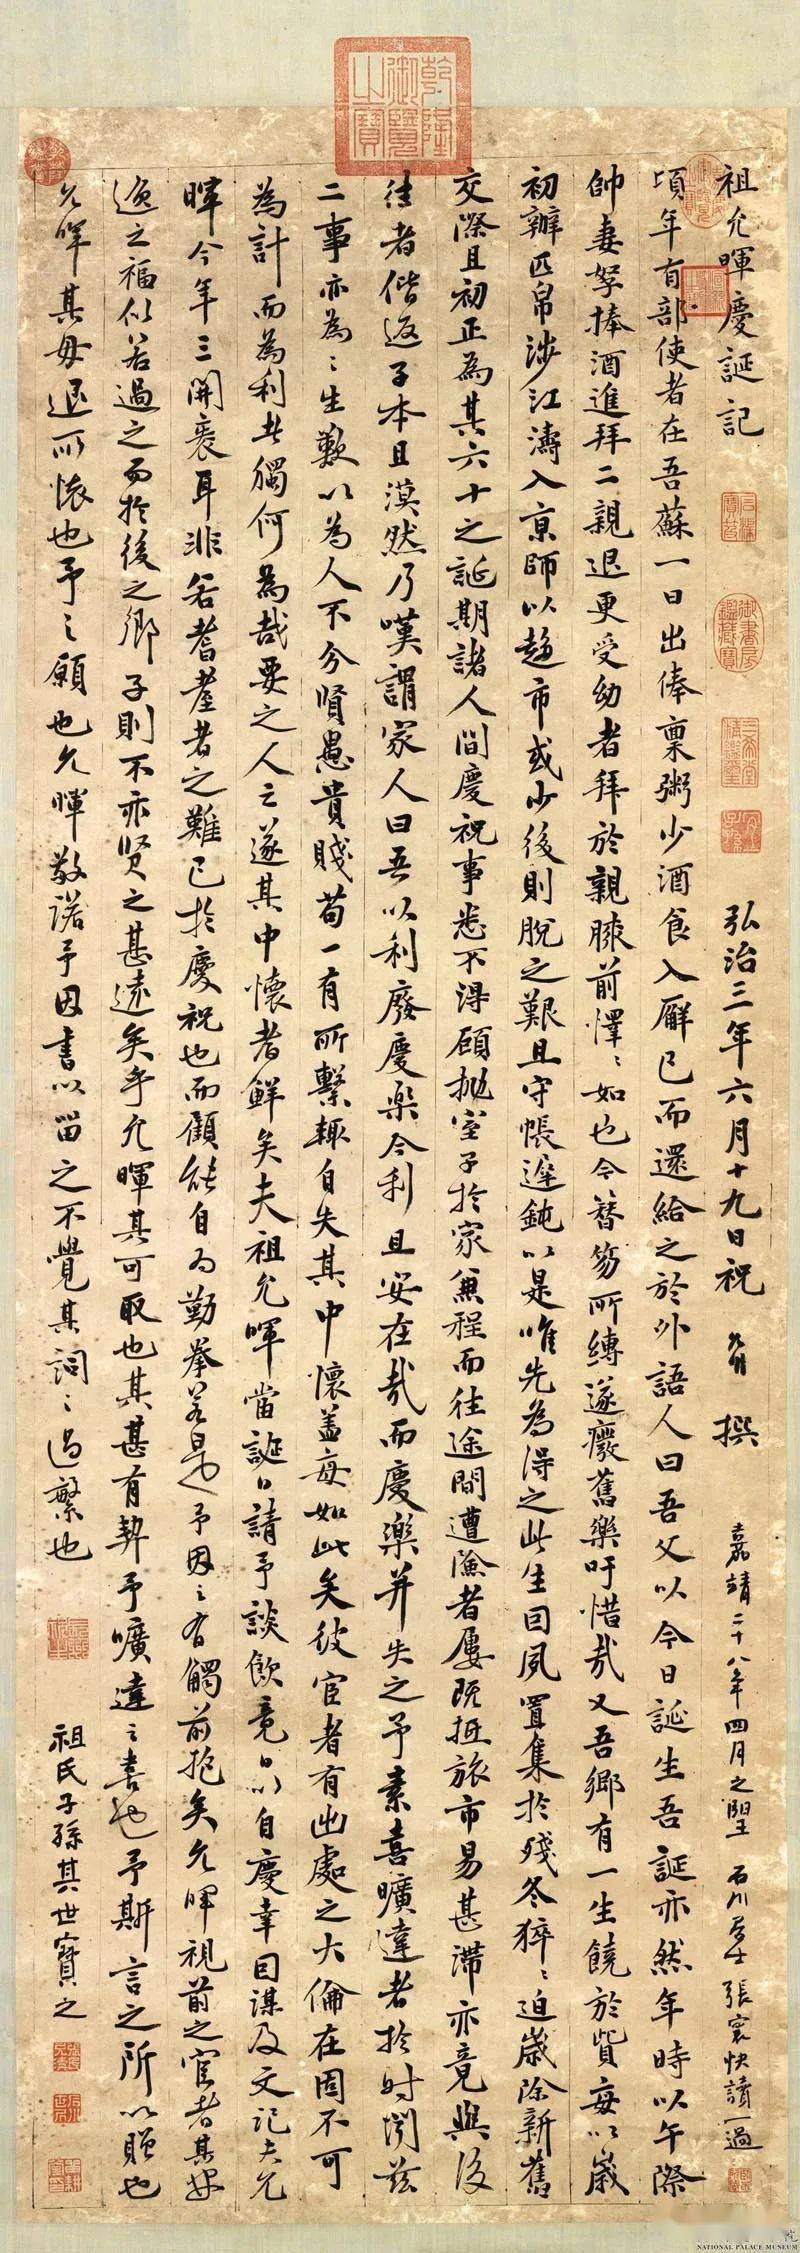 祖允暉慶誕記 弘治三年六月十九日祝 撰 嘉靖二十八年四月之望 石川居士張寰快讀一過
頃年有部使者在吾蘇一日出俸稟粥少酒食入廨已而還給之於外語人曰吾父以今日誕生吾誕亦然年時以午際
帥妻孥捧酒進拜二親退更受幼者拜於親膝前懌〻如也今簪笏所縛遂癈舊樂吁惜哉又吾鄉有一生饒於貲每以歲
初辦匹帛涉江濤入京師以趍市或少後則脫之艱且守帳遲鈍以是唯先為得之此生因夙置集於殘冬猝〻迫歲除新舊
交際且初正為其六十之誕期諸人間慶祝事悉不得顧拋室子於家兼程而往途間遭險者屢既抵旅市易甚滯亦竟與後
往者偕返子本且漠然乃嘆謂家人曰吾以利廢慶樂今利且安在哉而慶樂并失之予素喜曠達者於時閔茲
二事亦為〻生歎以為人不分賢愚貴賤苟一有所繫輒自失其中懷蓋每如此矣彼宦者有出處之大倫在固不可
為計而為利此觸何為哉要之人之遂其中懷者鮮矣夫祖允暉當誕日請予談飲竟日以自慶幸因謀及文記夫允
暉今年三開袠耳非若耆耋者之難已於慶祝也而顧能自為勤拳若是予因之有觸前抱矣允暉視前之宦者其安
逸之福似若過之而於後之鄉子則不亦賢之甚遠矣乎允暉其可取也其甚有契予曠達之喜也予斯言之所以贈也
允暉其毋退所懷也予之願也允暉敬諾予因書以留之不覺其詞〻過繁也
祖氏子孫其世寶之
乾隆御覽之寶
石渠寶笈
御書房鑑藏寶
三希堂精鑑璽
宜子孫
NATIONAL PALACE MUSEUM